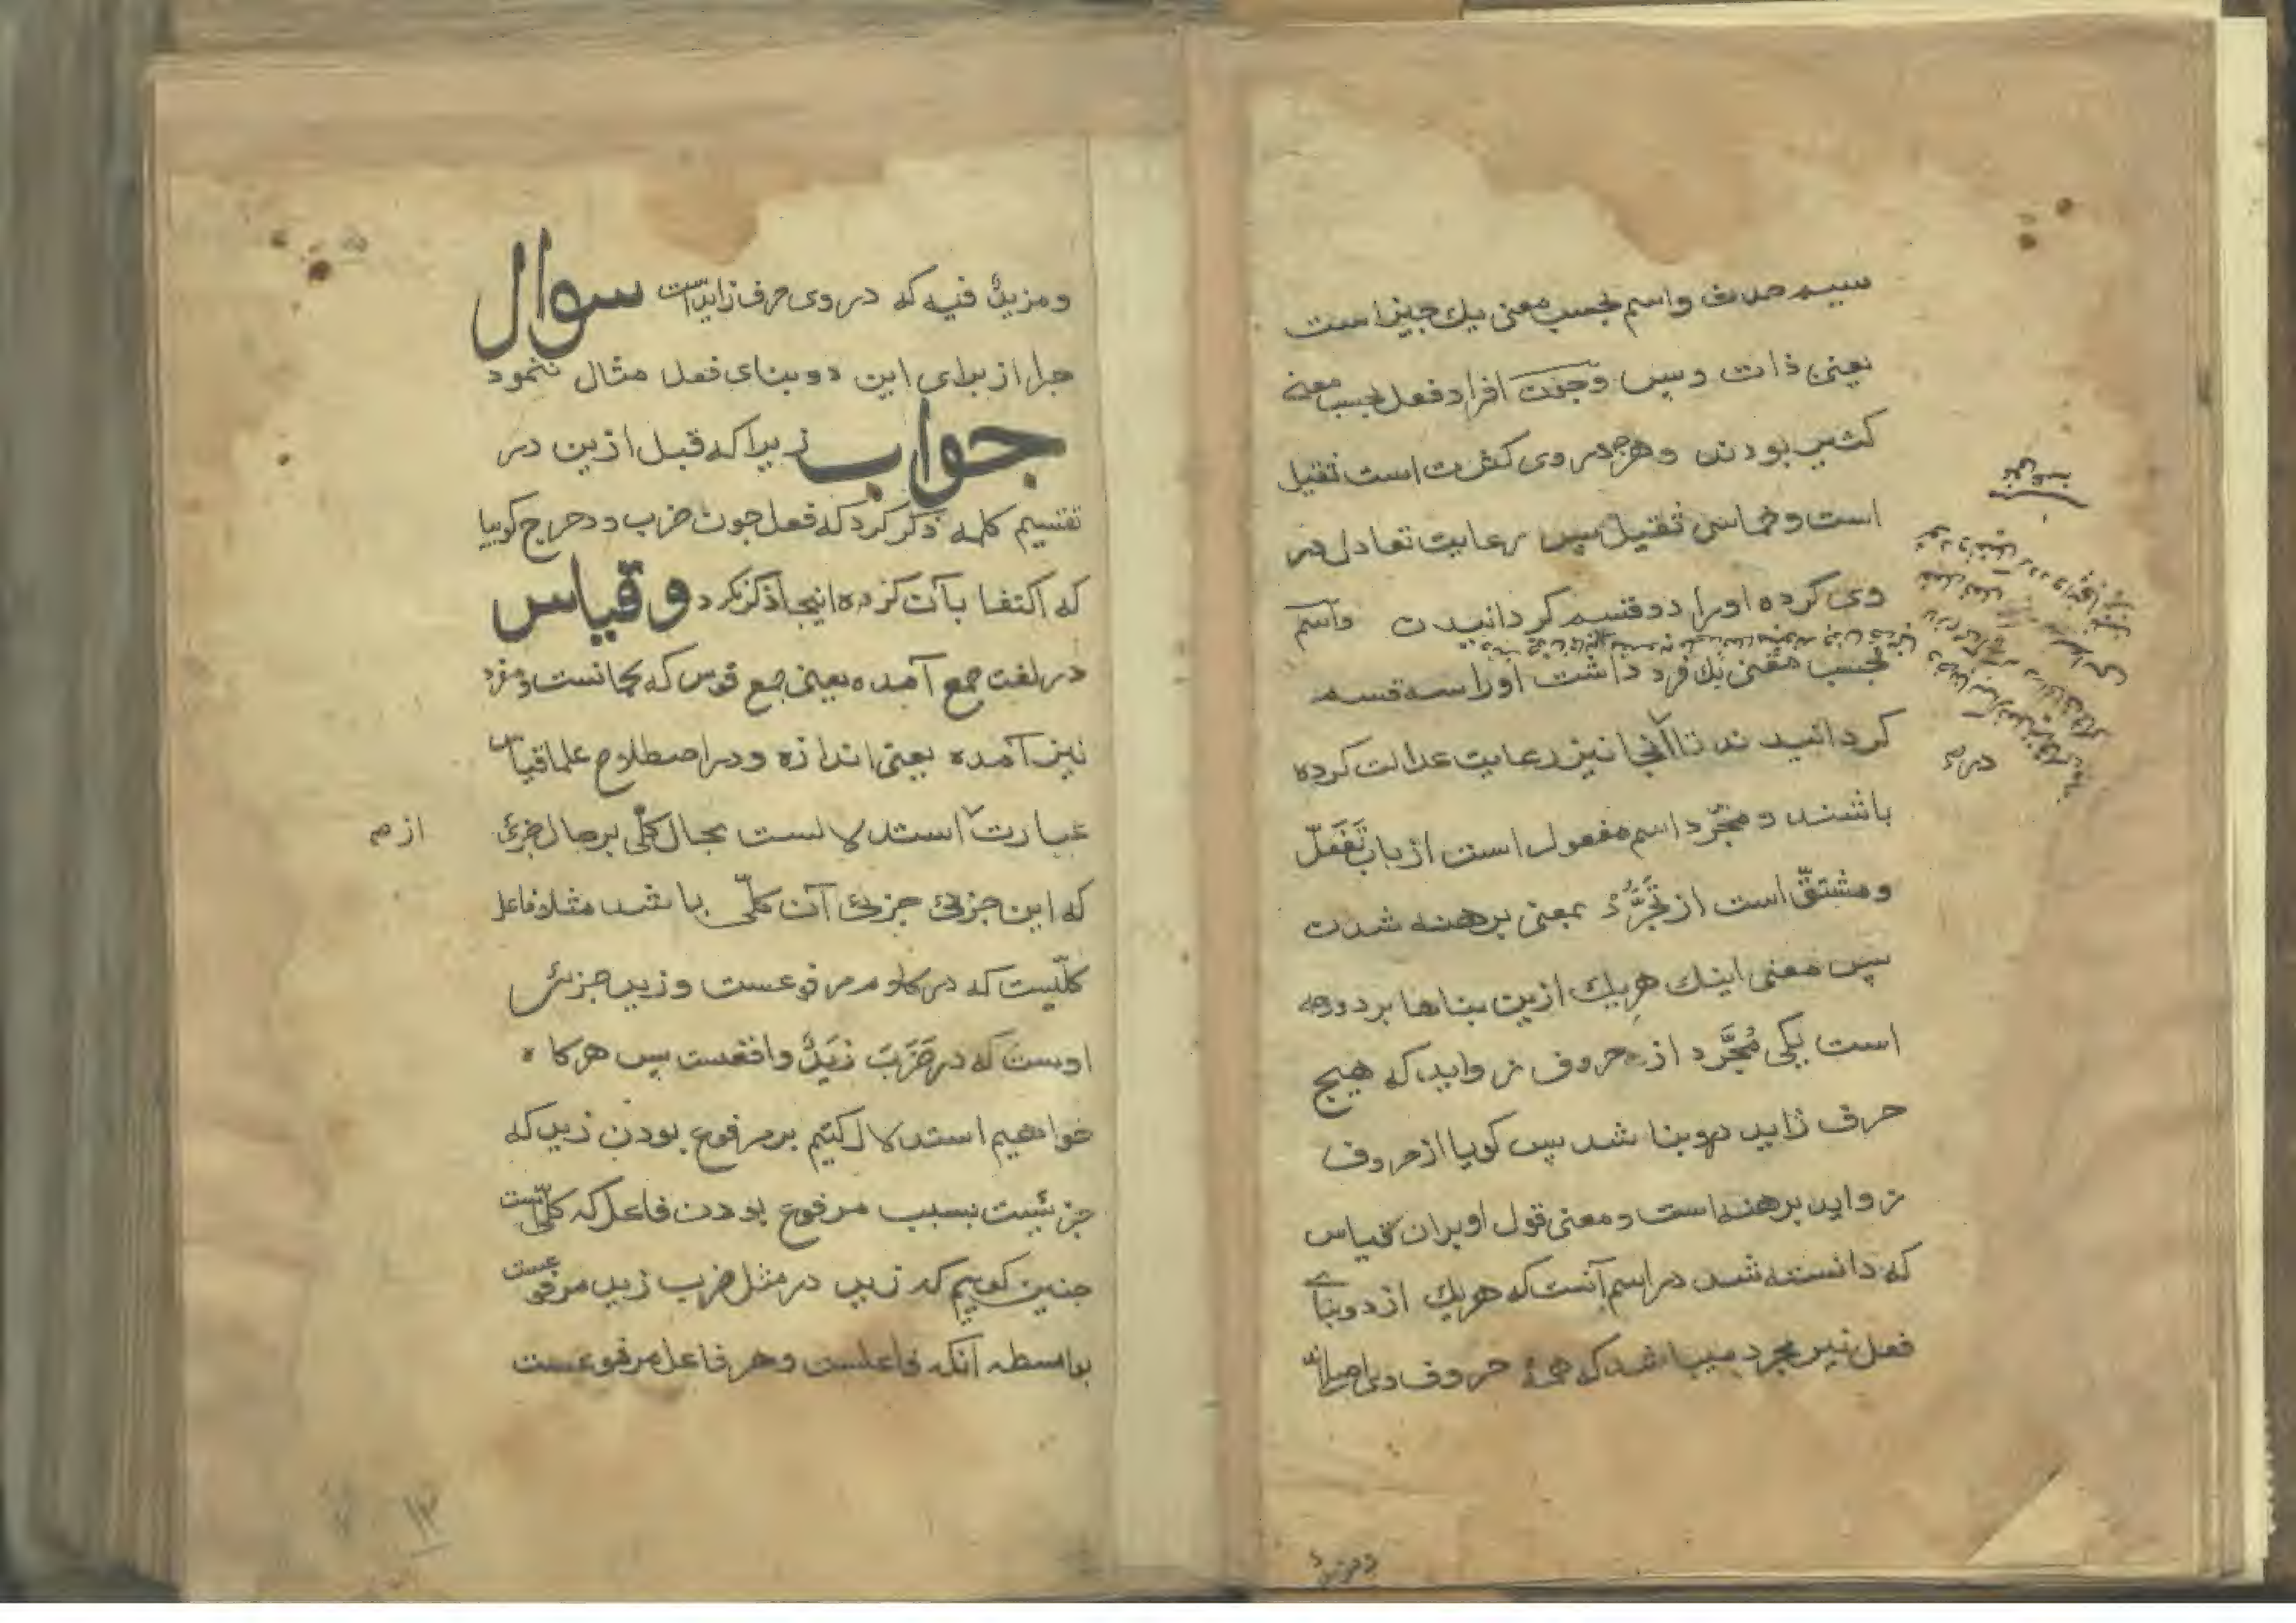 سیم حدث واسم بحسب معنی یك جیز است
یعنی ذات وبس وجون افراد فعل بحسب معنی
کثیر بودند وهرجه دروی کثرت است ثقیل
است وخماسی ثقیل بس رعایت تعادل در
وی کرده اورا دو قسم کردانیدن واسم
بحسب معنی یك فرد داشت اورا سه قسم
کردانیدند تا آنجا نیز رعایت عدالت کرده
باشند ومجرّد اسم مفعول است از باب تَفَعّل
ومشتقّ است از تَجَرُّدْ بمعنی برهنه شدن
بس معنی اینك هریك ازین بناها بر دو وجه
است یکی مُجَّرد از حروف زواید که هیج
حرف زاید دروبنا شد بس کویا از حروف
زواید برهنه است ومعنی قول او بران قیاس
که دانسته شد در اسم آنست که هریك از دو بنای
فعل نیز مجرد میباشد که همهٔ حروف وی اصلی
ومزیدٌ
ومزیدٌ فیه که در وی حرف زایدست سوال
جرا از برای این دو بنای فعل مثال ننمود
جواب زیرا که قبل ازین در
تقسیم کلمه ذکر کرد که فعل جون ضرب ودحرج کویا
که اکتفا بآن کرده اینجا ذکر نکرد وقیاس
در لغت جمع آمده یعنی جمع قوس که کمانست ومفرد
نیز آمده یعنی اندازه ودر اصطلاح علما قیاس
عبارت استدلالست بحال کلّی بر حال جزئ
از م
که این جزئ جزئ آن کلّی باشد مثلا فاعل
کلّیست که در کلام مرفوعست وزید جزئ
اوست که در ضَرَبَ زَیدٌ واقعست بس هرکاه
خواهیم استدلال کنیم بر مرفوع بودن زید که
جزئیست بسبب مرفوع بودن فاعل که کلّیست
جنین کوییم که زید در مثل ضرب زید مرفوعست
بواسطه آنکه فاعلست وهر فاعل مرفوعست
۱۲